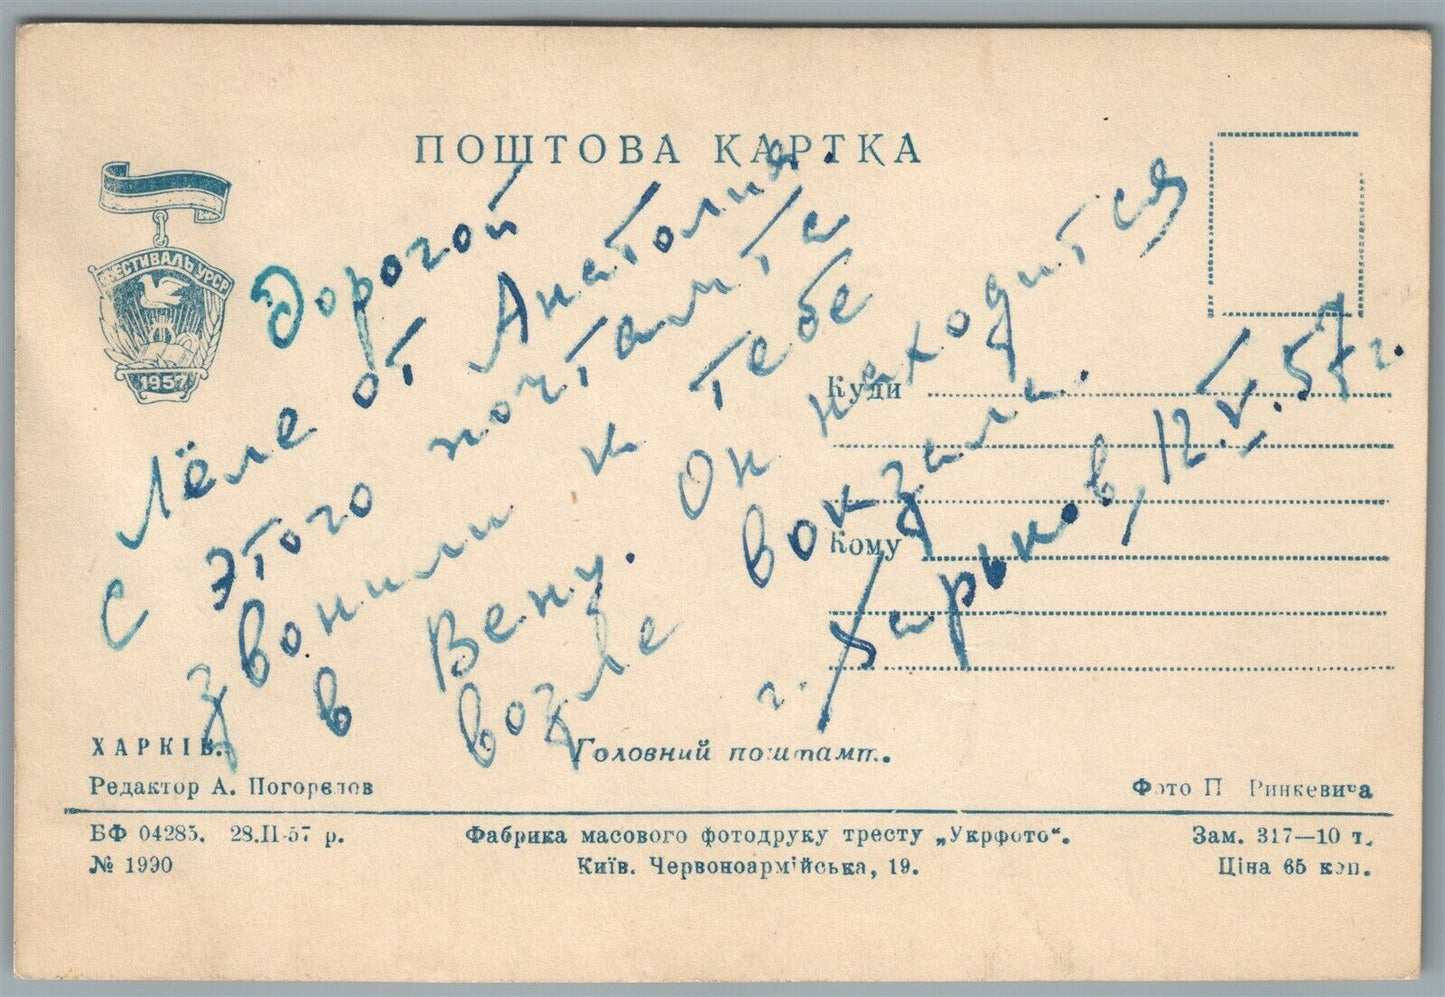 ПОШТОВА КАРТКА
ФЕСТИВАЛЬ УРСР
1957
Дорогой
Лёле от Анатолия.
С этого почтамта
звонили к тебе
в Вену. Он находится
возле вокзала.
г. Харьков, 12.V.57 г.
Куди
Кому
ХАРКІВ.
Головний поштамт.
Редактор А. Погорелов
Фото П Ринкевича
БФ 04285. 28.II-57 р.
Фабрика масового фотодруку тресту „Укрфото“.
Зам. 317—10 т.
№ 1990
Київ. Червоноармійська, 19.
Ціна 65 коп.